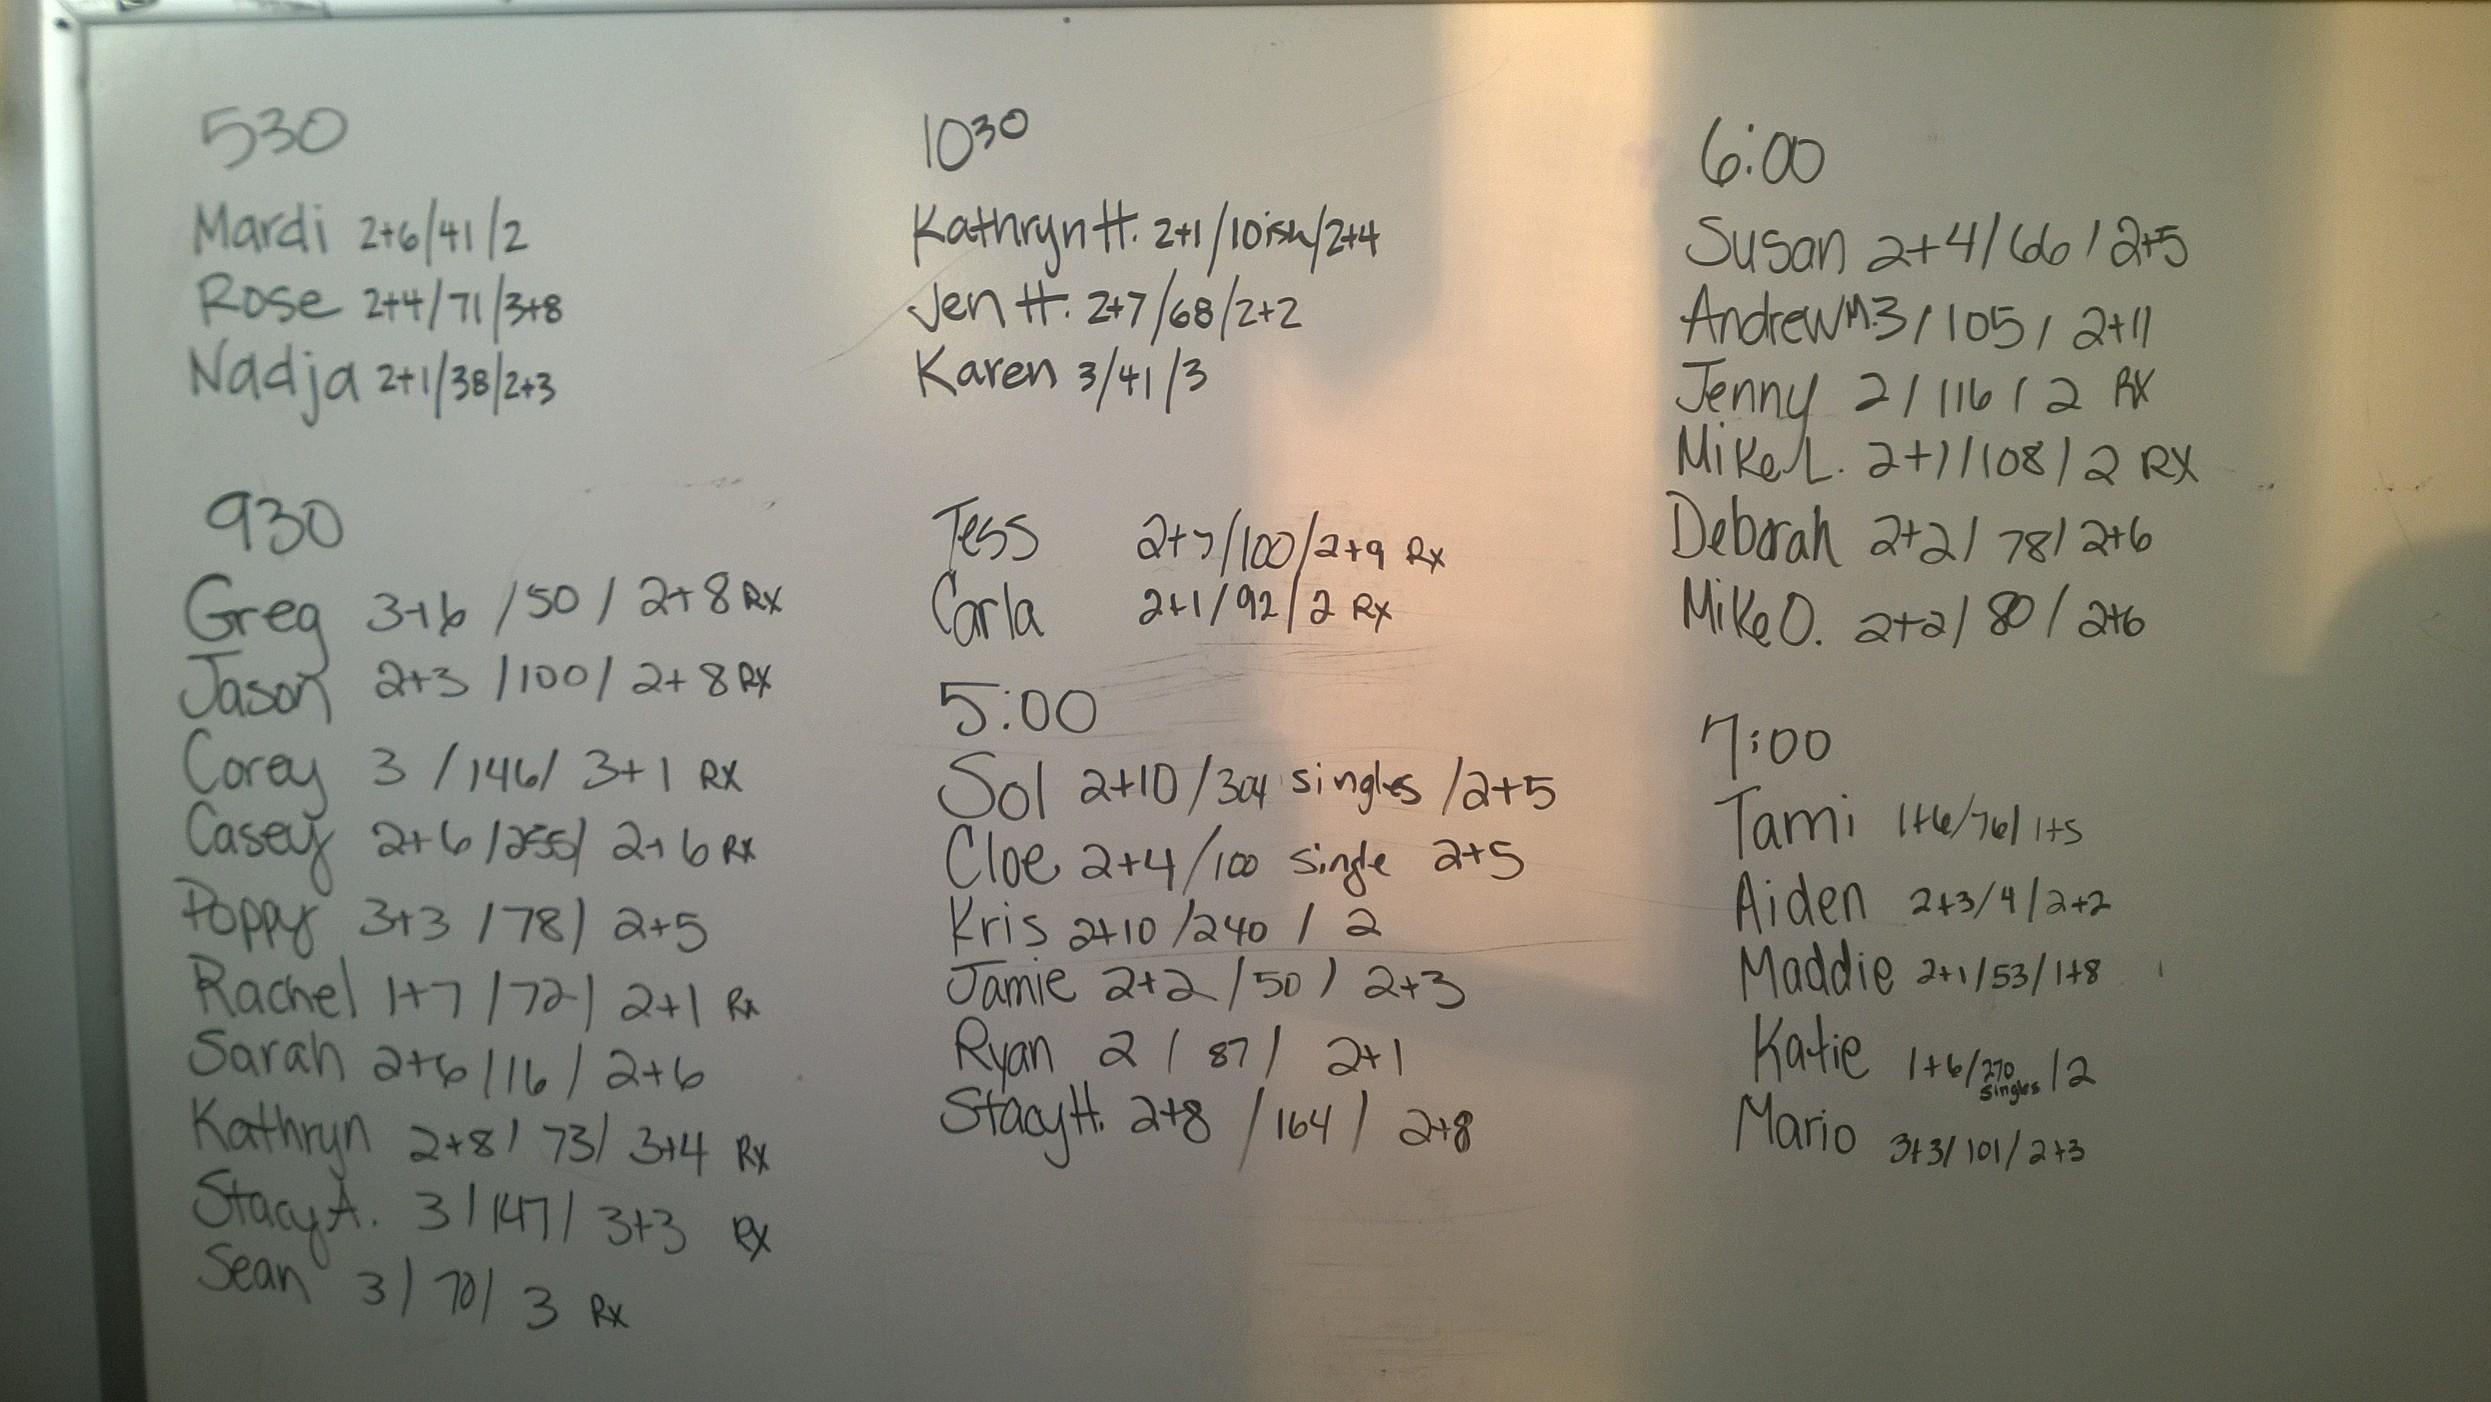 530
Mardi 2+6/41/2
Rose 2+4/71/3+8
Nadja 2+1/38/2+3
930
Greg 3+6 /50 / 2+8 RX
Jason 2+3 /100/ 2+8 RX
Corey 3 /146/ 3+1 RX
Casey 2+6 /255/ 2+6 RX
Poppy 3+3 /78/ 2+5
Rachel 1+7 /72/ 2+1 Rx
Sarah 2+6 /16 / 2+6
Kathryn 2+8/ 73/ 3+4 Rx
Stacy A. 3 /147/ 3+3 Rx
Sean 3/ 70/ 3 Rx
1030
Kathryn H. 2+1/10ish/2+4
Jen H. 2+7/68/2+2
Karen 3/41/3
Tess 2+7/100/2+9 Rx
Carla 2+1/92/2 Rx
5:00
Sol 2+10/304 singles /2+5
Cloe 2+4/100 single 2+5
Kris 2+10/240 / 2
Jamie 2+2 /50 / 2+3
Ryan 2 / 87/ 2+1
Stacy H. 2+8 /164/ 2+8
6:00
Susan 2+4/66 / 2+5
Andrew M. 3/105/ 2+11
Jenny 2/116/2 RX
Mike L. 2+1/108/2 RX
Deborah 2+2/ 78/ 2+6
Mike O. 2+2/ 80/ 2+6
7:00
Tami 1+6/76/1+5
Aiden 2+3/4/2+2
Maddie 2+1/53/1+8
Katie 1+6/270 singles /2
Mario 3+3/101/2+3